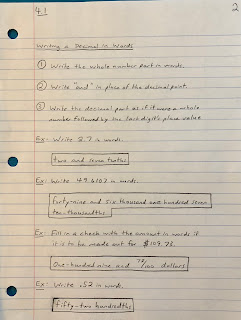 4.1
2
Writing a Decimal in Words
① Write the whole number part in words.
② Write "and" in place of the decimal point.
③ Write the decimal part as if it were a whole
number followed by the last digit's place value
Ex: Write 2.7 in words.
two and seven tenths
Ex: Write 49.6107 in words.
Forty-nine and six thousand one hundred seven
ten-thousandths
Ex: Fill in a check with the amount in words if
it is to be made out for $109.73.
One-hundred nine and 73/100 dollars
Ex: Write .52 in words.
fifty-two hundredths